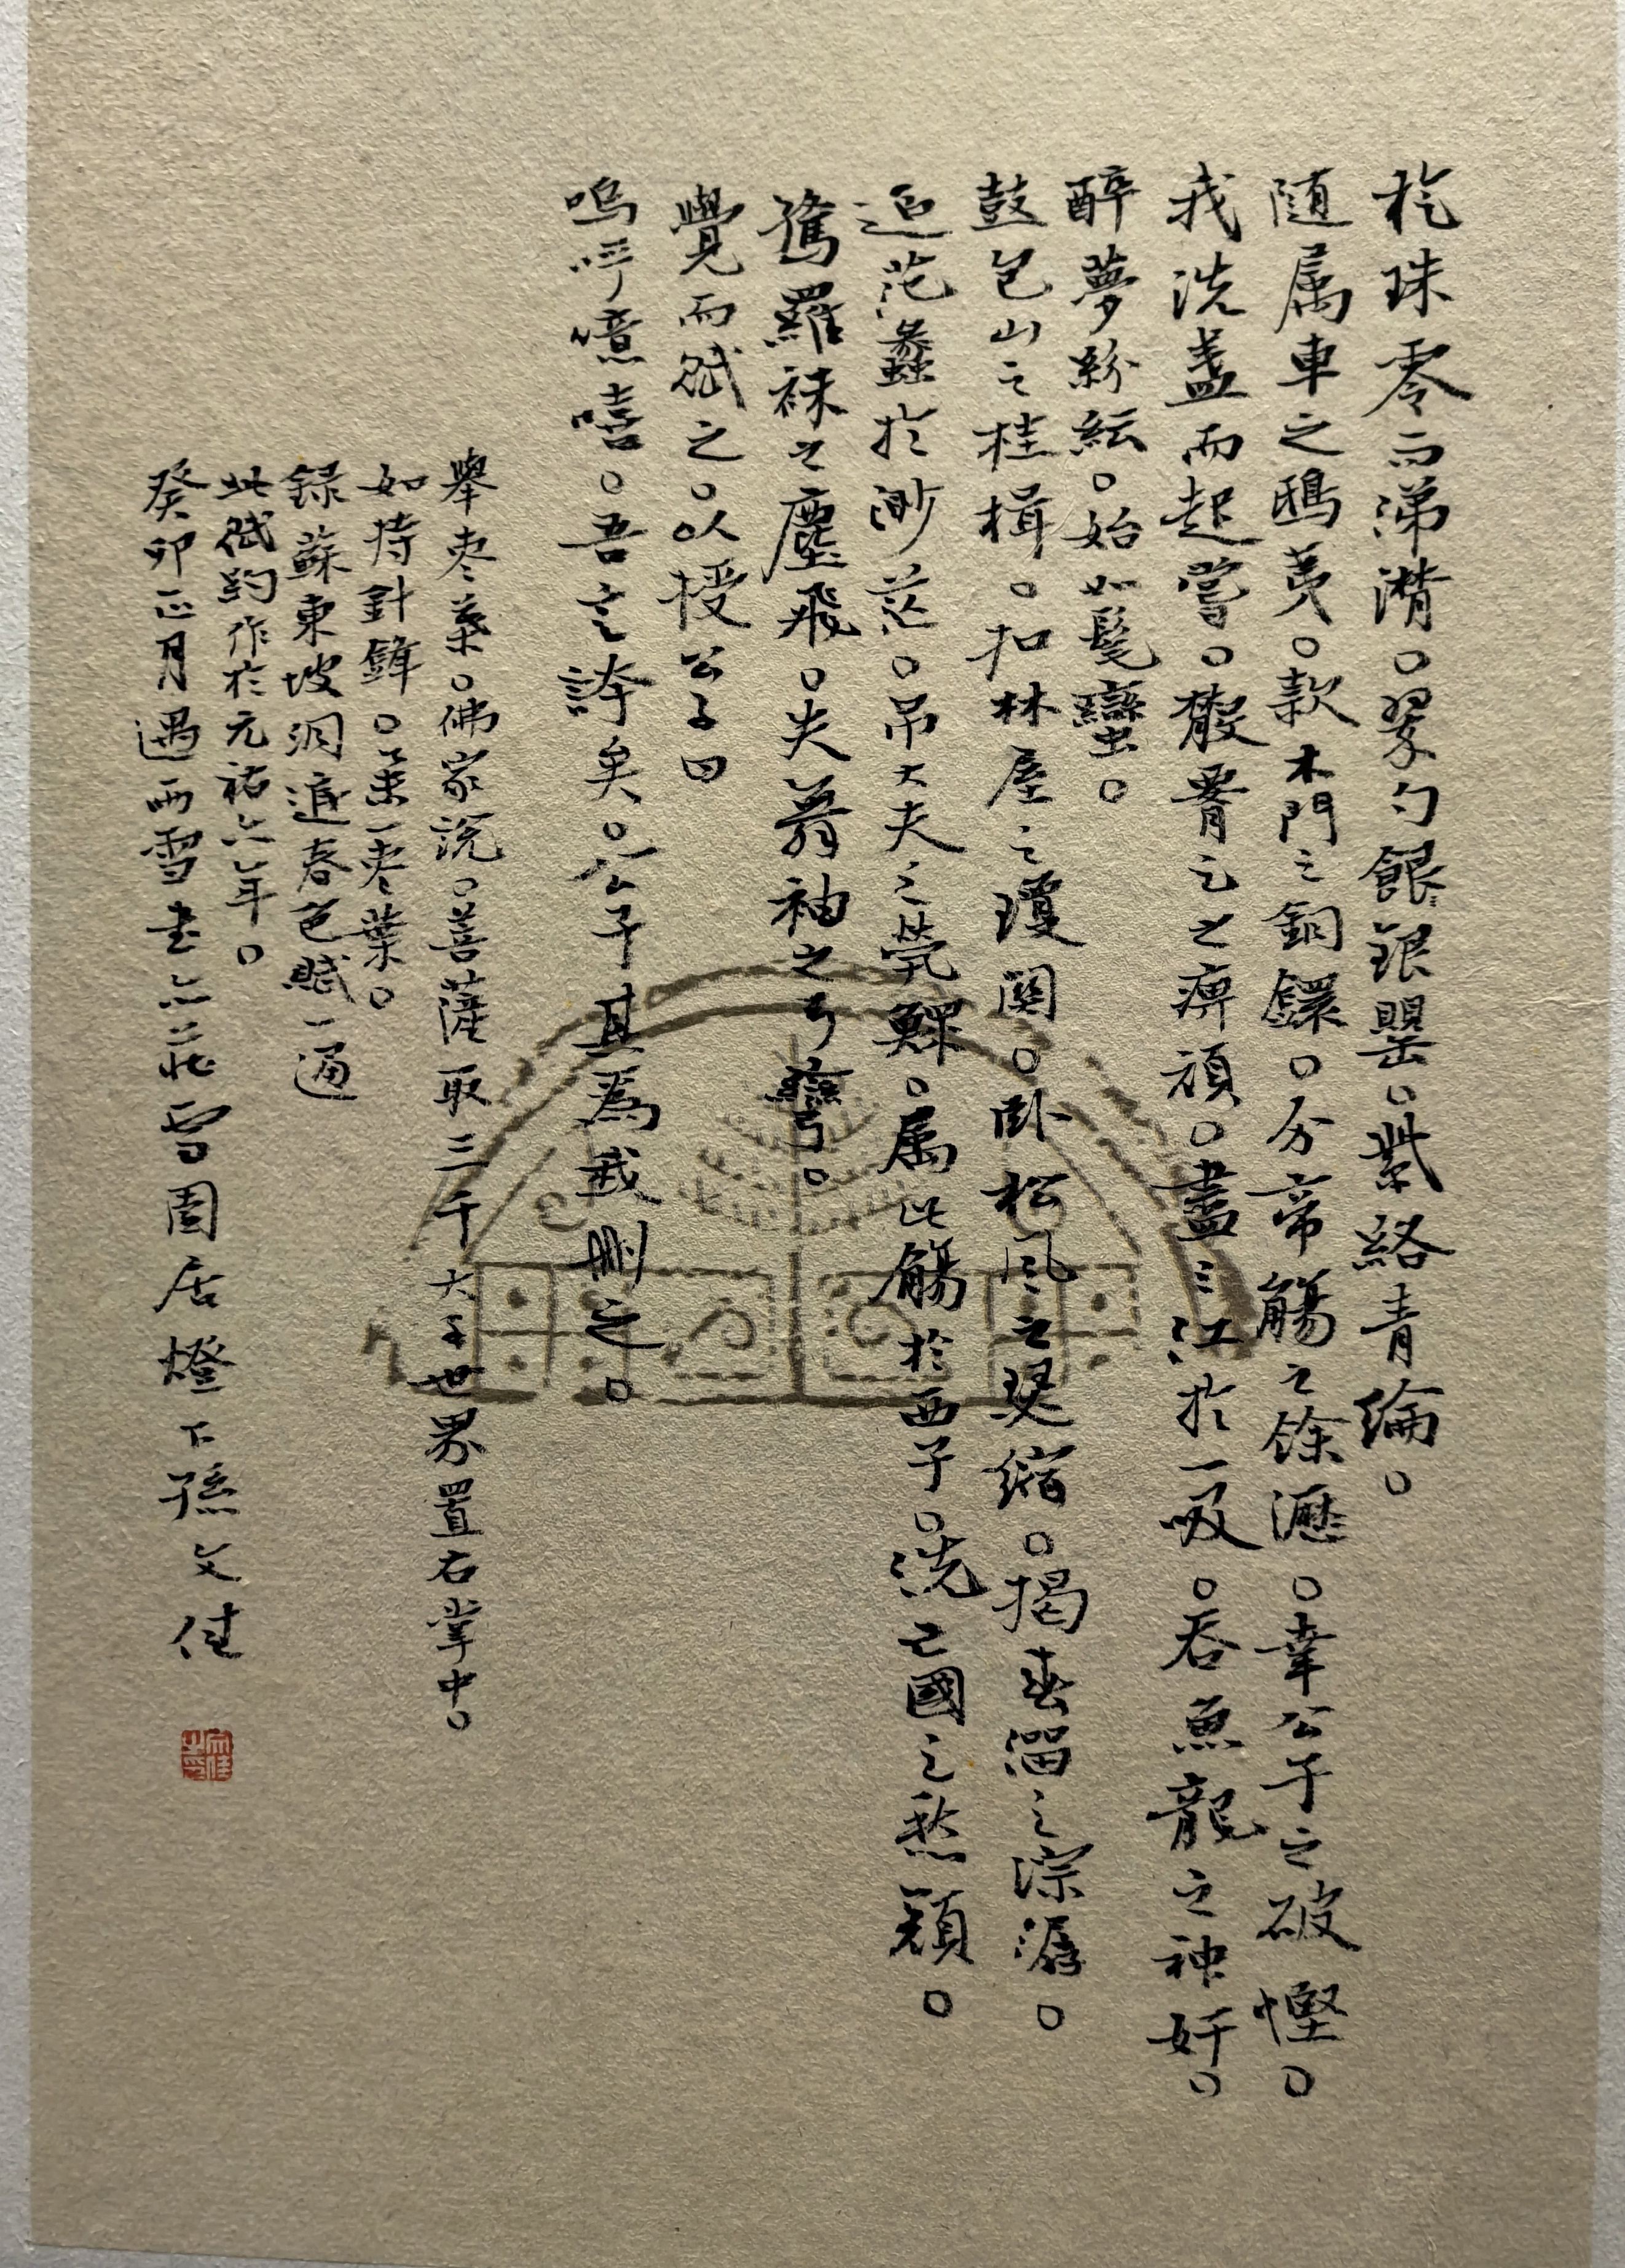 秔珠零而涕潸。翠勺銀罌。紫絡青綸。
随属車之鴟夷。款木門之銅鐶。分帝觴之餘瀝。幸公子之破慳。
我洗盞而起嘗。散腰足之痹頑。盡三江於一吸。吞魚龍之神奸。
醉夢紛紜。始如髦蠻。
鼓包山之桂楫。扣林屋之瓊関。卧松風之瑟缩。揭春溜之淙潺。
追范蠡於渺茫。吊大夫之煢鰥。属此觴於西子。洗亡國之愁顔。
驚羅袜之塵飛。失舞袖之弓彎。
覺而賦之。以授公子曰
嗚呼噫嘻。吾言誇矣。公子其為我删之。
舉枣葉。佛家説。菩薩取三千大千世界置右掌中。
如持針鋒。舉一枣葉。
録蘇東坡洞庭春色賦一通
此賦約作於元祐六年。
癸卯正月遇雨雪書 雪園居燈下孫文